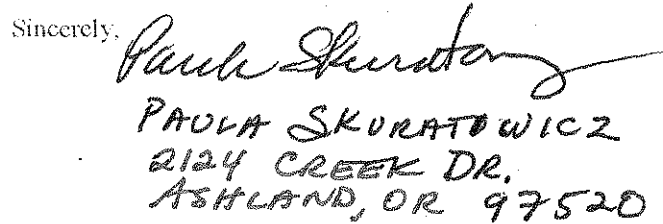 Sincerely,
Paula Skuratowicz
PAULA SKURATOWICZ
2124 CREEK DR.
ASHLAND, OR 97520